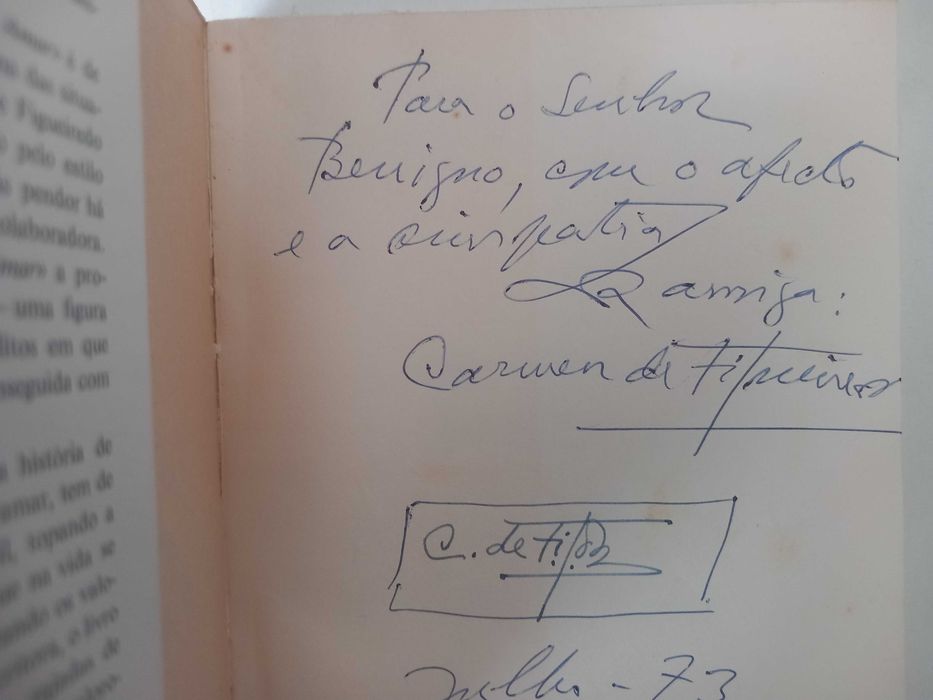 amar» é de
Figueiredo
pelo estilo
pendor há
colaboradora.
mar» a pro-
– uma figura
ditos em que
sseguida com
a história de
amar, tem de
topando a
na vida se
o livro
de
Para o Senhor
Benigno, com o afecto
e a simpatia
Da amiga:
Carmen de Figueiredo
C. de Fig
Julho - 73